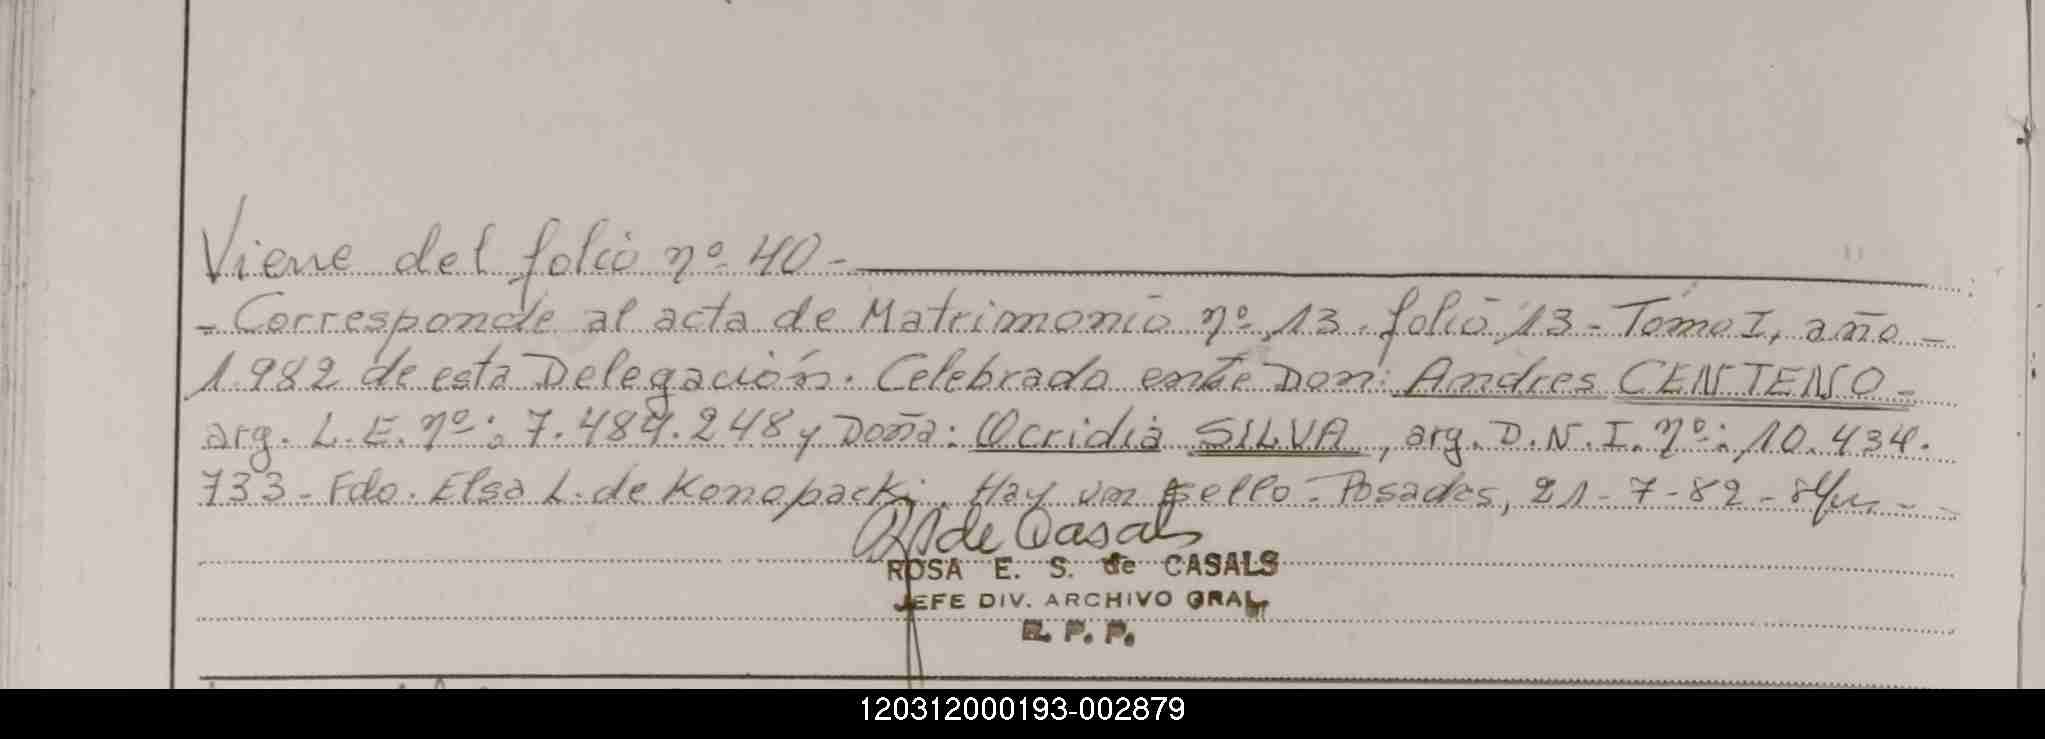 Viene del folio nº 40 -
- Corresponde al acta de Matrimonio nº 13. folio 13 - Tomo I, año -
1.982 de esta Delegación. Celebrado entre Don: Andres CENTENO -
arg. L.E. nº: 7.484.248 y Doña: Ocridia SILVA, arg. D.N.I. nº: 10.434.
733 - Fdo. Elsa L. de Konopacki. Hay un sello - Posadas, 21-7-82 -
RS de Casals
ROSA E. S. de CASALS
JEFE DIV. ARCHIVO GRAL
R. P. P.
120312000193-002879